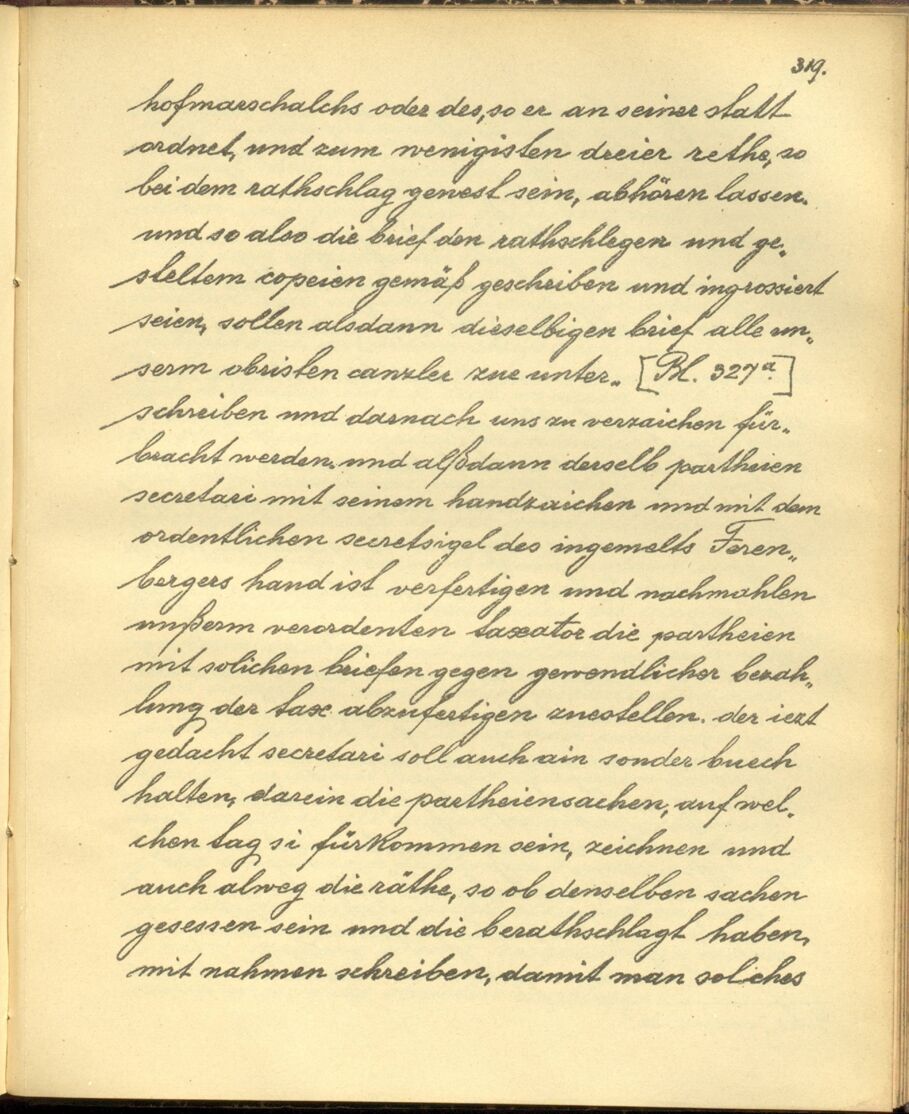 319.
hofmarschalchs oder des, so er an seiner statt
ordnet, und zum wenigisten dreier rethe, so
bei dem rathschlag gewest sein, abhören lassen.
und so also die brief den rathschlegen und ge„
steltem copeien gemäß geschrieben und ingrossiert
seien, sollen alsdann dieselbigen brief alle un„
serm obristen canzler zue unter„ [Bl. 327a.]
schreiben und darnach uns zu verzaichen für„
bracht werden. und alßdann derselb partheien
secretari mit seinem handzaichen und mit dem
ordentlichen secretsigel des ingemelts Feren„
bergers hand ist verfertigen und nachmahlen
unßerm verordenten taxator die partheien
mit solichen briefen gegen gewendlicher bezah„
lung der tax abzufertigen zuestellen. der iezt
gedacht secretari soll auch ain sonder buech
halten, darein die partheiensachen, auf wel„
chen tag si fürkommen sein, zeichnen und
auch alweg die räthe, so ob denselben sachen
gesessen sein und die berathschlagt haben,
mit nahmen schreiben, damit man solches